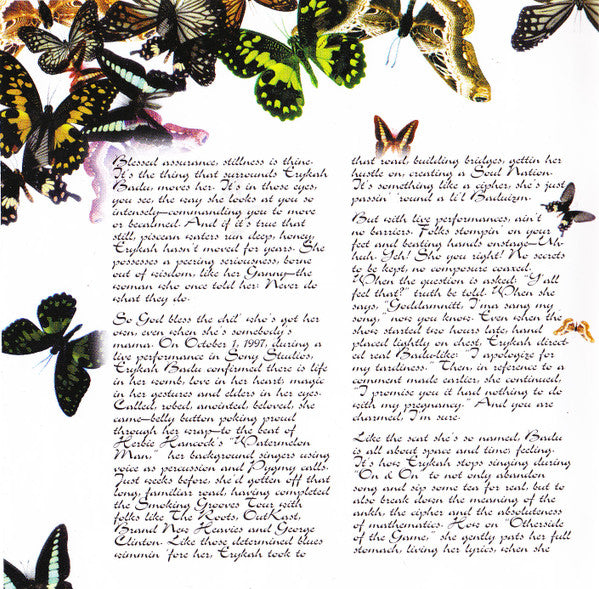 Blessed assurance, stillness is thine.
It's the thing that surrounds Erykah
Badu, moves her. It's in those eyes,
you see, the way she looks at you so
intensely—commanding you to move
or be calmed. And if it's true that
still, piscean waters run deep, honey,
Erykah hasn't moved for years. She
possesses a peering seriousness, borne
out of wisdom, like her Ganny—the
woman who once told her: Never do
what they do.
So God bless the chil' who's got her
own, even when she's somebody's
mama. On October 1, 1997, during a
live performance in Sony Studios,
Erykah Badu confirmed there is life
in her womb, love in her heart, magic
in her gestures and elders in her eyes.
Called, robed, anointed, beloved, she
came—belly button poking proud
through her wrap—to the beat of
Herbie Hancock's "Watermelon
Man," her background singers using
voice as percussion and Pygmy calls.
Just weeks before, she'd gotten off that
long, familiar road, having completed
the Smoking Grooves Tour with
folks like The Roots, OutKast,
Brand Nu Heavies and George
Clinton. Like those determined blues
wimmin 'fore her, Erykah took to
that road, building bridges, gettin her
hustle on, creating a Soul Nation.
It's something like a cipher; she's just
passin' 'round a li'l Baduizm.
But with live performances, ain't
no barriers. Folks stompin' on your
feet and beating hands onstage—Uh
huh. Yeh! Sho you right! No secrets
to be kept, no composure coaxed.
When the question is asked: "Y'all
feel that?" truth be told. When she
says, "Goddammitt, I'ma sang my
song," now you know. Even when the
show started two hours late, hand
placed lightly on chest, Erykah direct-
ed real Badu-like: "I apologize for
my tardiness." Then, in reference to a
comment made earlier, she continued,
"I promise you it had nothing to do
with my pregnancy." And you are
charmed, I'm sure.
Like the scat she's so named, Badu
is all about space and time, feeling.
It's how Erykah stops singing during
"On & On" to not only abandon
song and sip some tea for real, but to
also break down the meaning of the
ankh, the cipher and the absoluteness
of mathematics. How on "Otherside
of the Game," she gently pats her full
stomach, living her lyrics, when she